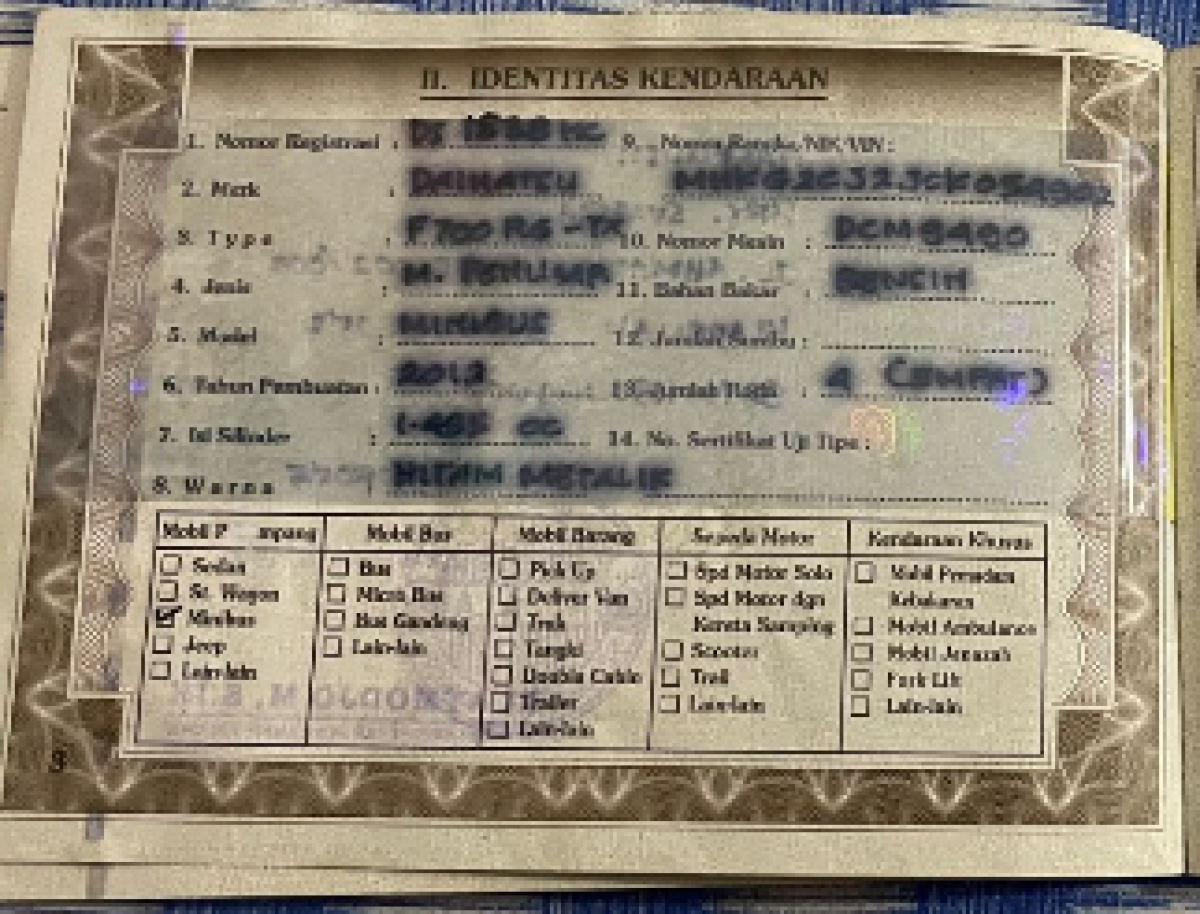 II. IDENTITAS KENDARAAN
1. Nomor Registrasi :
9. Nomor Rangka/NIK/VIN :
2. Merk : DAIHATSU
3. Type : F700 RG - TX
10. Nomor Mesin : DCM9490
4. Jenis : M. PENUMP
11. Bahan Bakar : BENSIN
5. Model : MINIBUS
12. Jumlah Sumbu :
6. Tahun Pembuatan : 2012
13. Jumlah Roda : 4 (EMPAT)
7. Isi Silinder : 1.495 CC
14. No. Sertifikat Uji Tipe :
8. Warna : HITAM METALIK
Mobil P mpang
Sedan
St. Wagon
Minibus
Jeep
Lain-lain
Mobil Bus
Bus
Micro Bus
Bus Gandeng
Lain-lain
Mobil Barang
Pick Up
Deliver Van
Truk
Tangki
Double Cabin
Trailer
Lain-lain
Sepeda Motor
Spd Motor Solo
Spd Motor dgn
Kereta Samping
Scooter
Trail
Lain-lain
Kendaraan Khusus
Mobil Pemadam
Kebakaran
Mobil Ambulance
Mobil Jenazah
Fork Lift
Lain-lain
3